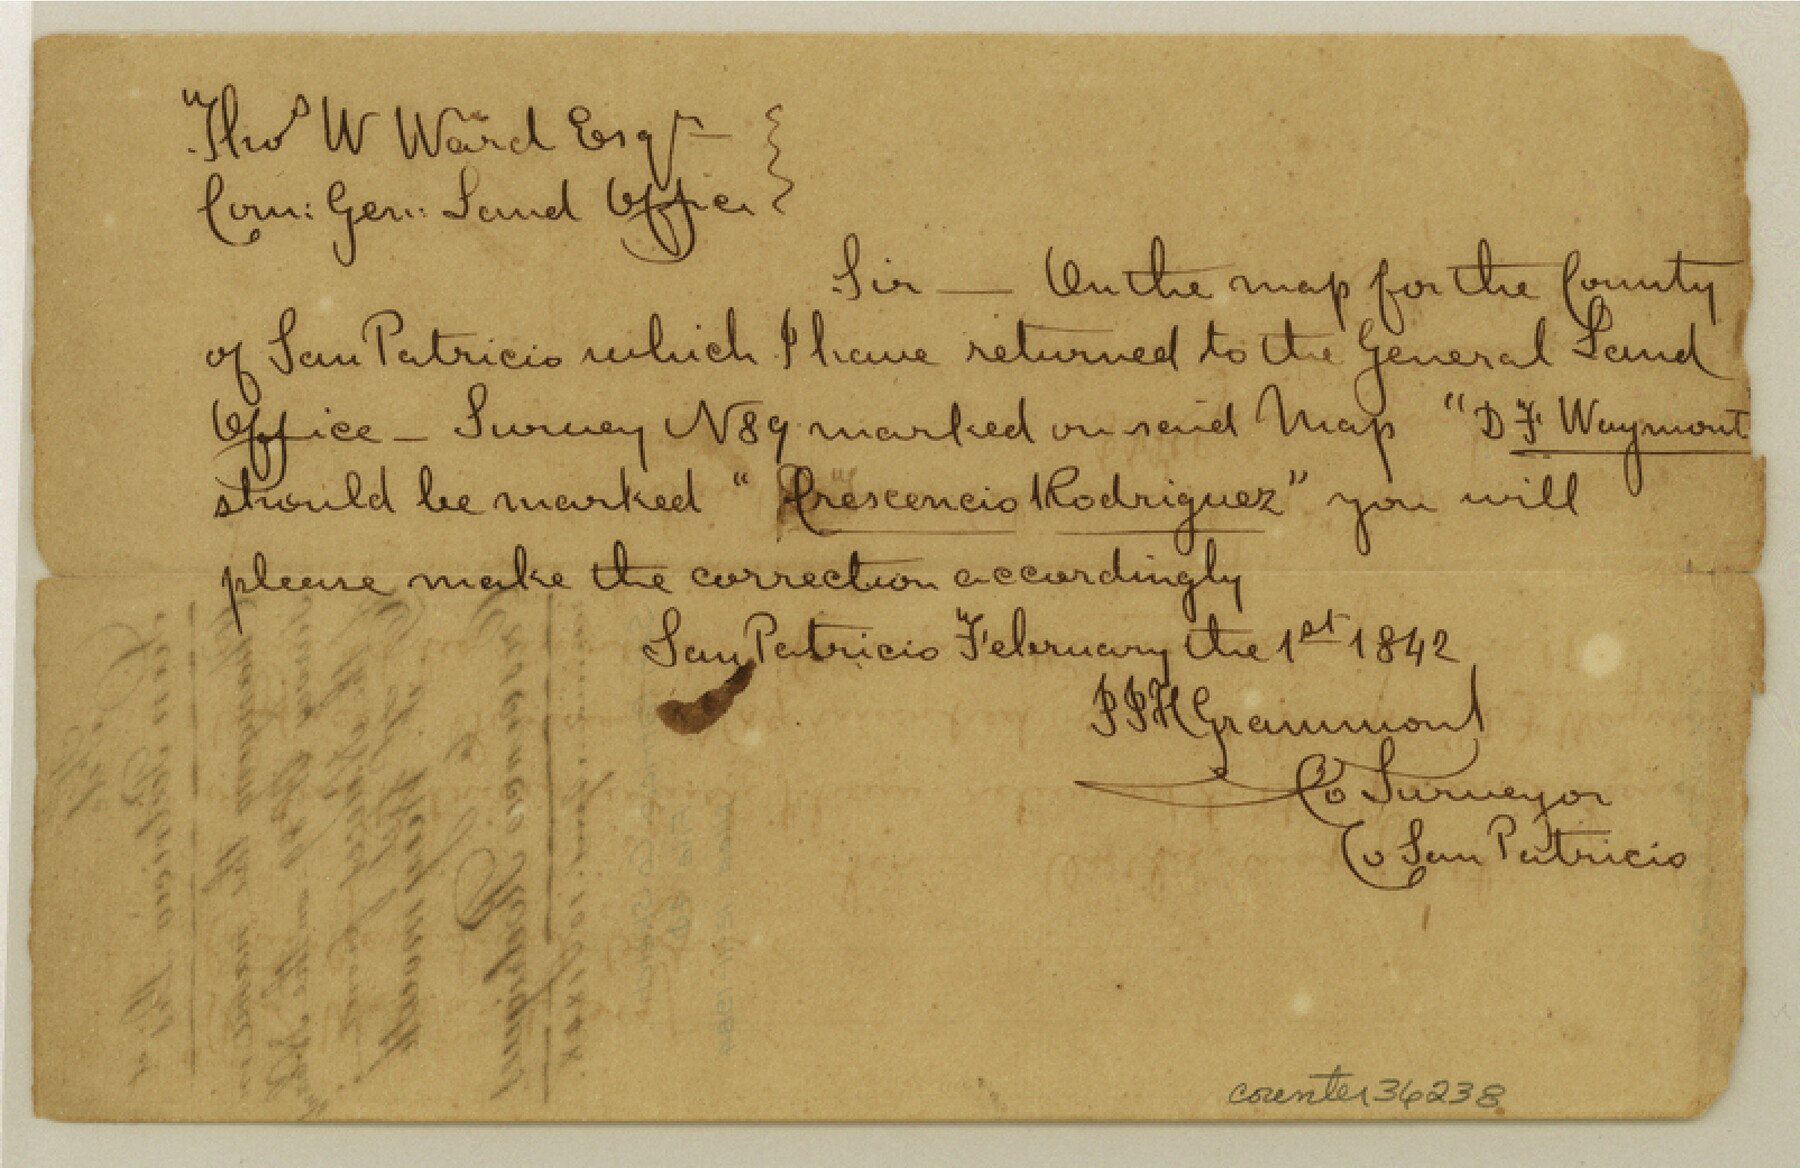 Thos W Ward Esqr
Com: Gen: Land Office
Sir — On the map for the County
of San Patricio which I have returned to the General Land
Office — Survey N 89 marked on said Map "D F Waymont
should be marked "Crescencio Rodriguez" you will
please make the correction accordingly
San Patricio February the 1st 1842
J J H Grammont
Co Surveyor
Co San Patricio
counter 36238